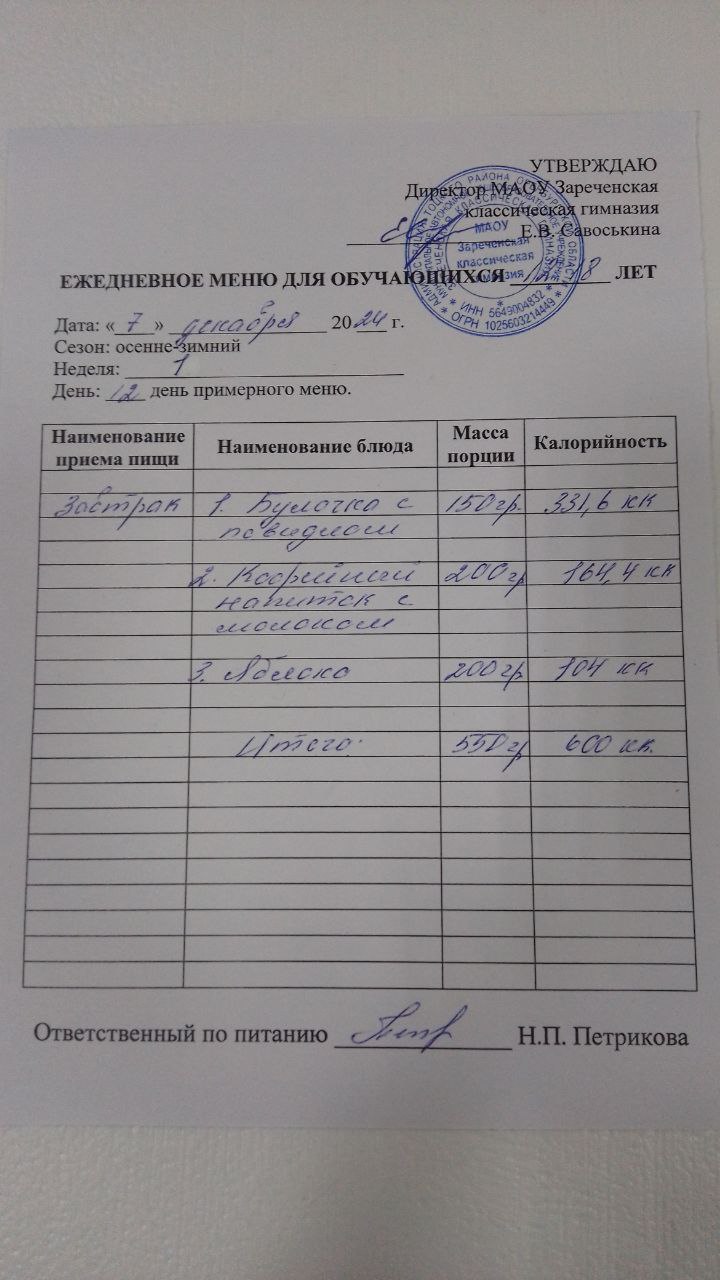 УТВЕРЖДАЮ
Директор МАОУ Зареченская
классическая гимназия
Е.В. Савоськина
МАОУ
Зареченская
классическая
гимназия
* ИНН 5649004832 *
* ОГРН 1025603214449 *
ЕЖЕДНЕВНОЕ МЕНЮ ДЛЯ ОБУЧАЮЩИХСЯ ЛЕТ
Дата: « 7 » декабря 2024 г.
Сезон: осенне-зимний
Неделя: 1
День: 12 день примерного меню.
Наименование приема пищи Наименование блюда Масса порции Калорийность
Завтрак 1. Булочка с 150гр. 331,6 кк
повидлом
2. Кофейный 200гр 164,4 кк
напиток с
молоком
3. Яблоко 200гр 104 кк
Итого: 550гр 600 кк.
Ответственный по питанию Н.П. Петрикова